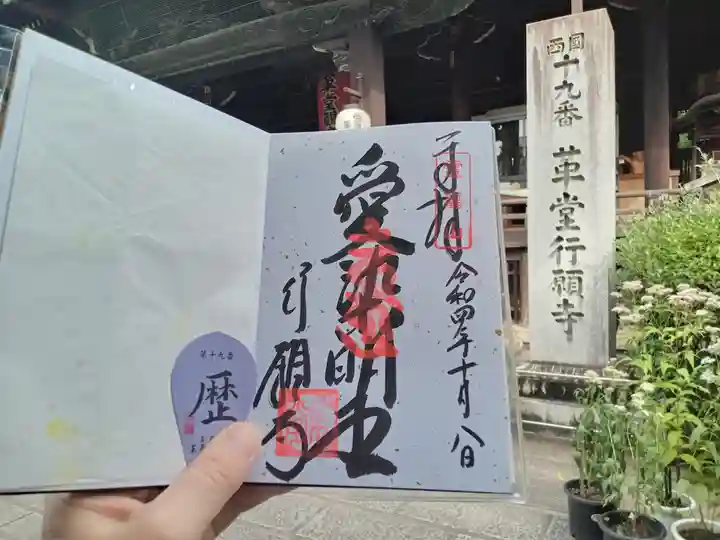 奉拝
令和四年十月八日
愛染明王
行願寺
第十九番
歴
西国
十九番 革堂行願寺